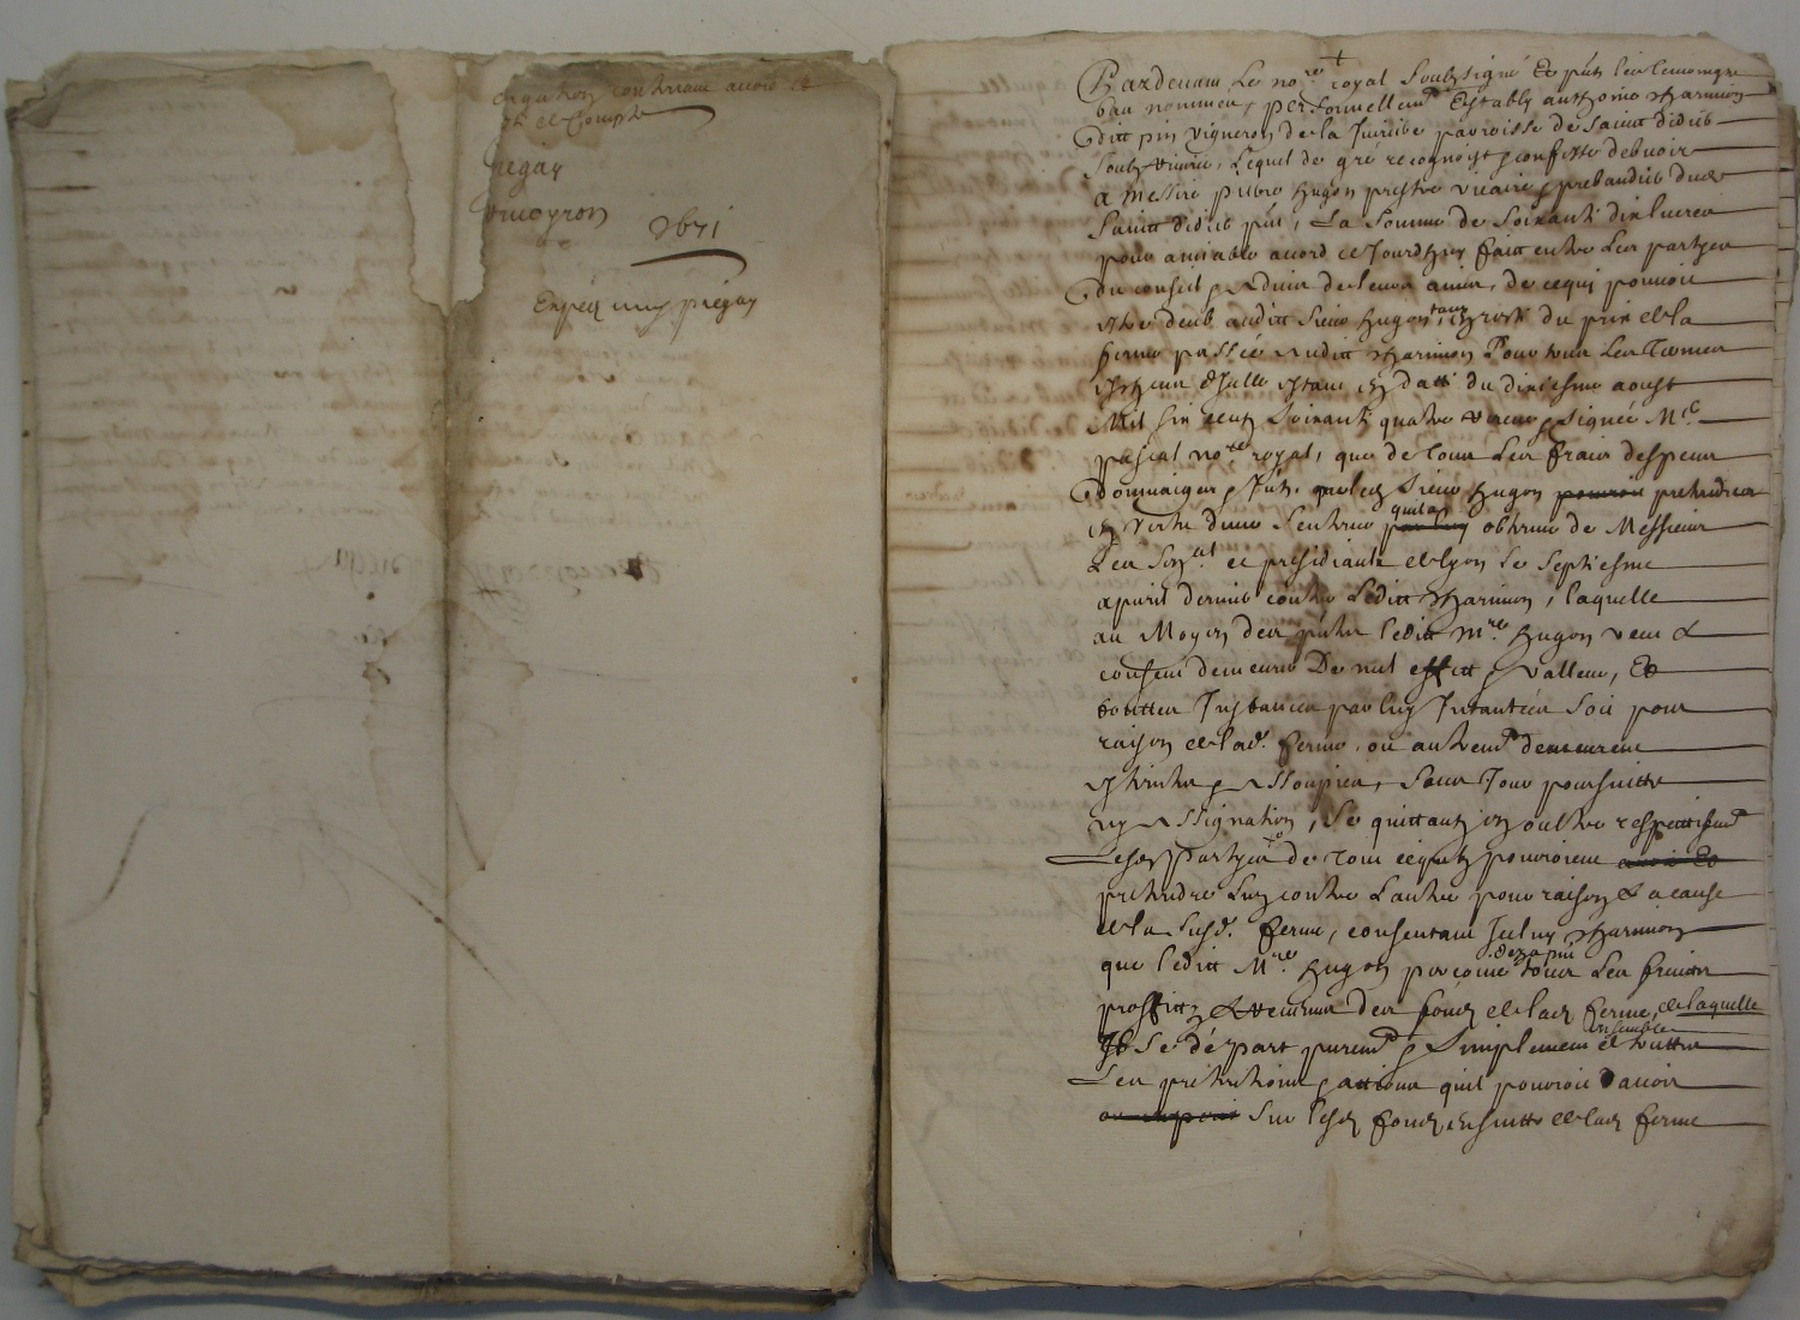 contenant accord &
et de Compte
1671
+
Pardevant Le no.re royal Soubsigné Et pñts les temoings
bas nommes, personnellem.t Estably anthoine Marmion
dit pin vigneron de la paroisse de Saint didier
Soubz Riverie, Lequel de gré recognoist & confesse debvoir
a Messire pierre hugon prestre vicaire & prebandier dud.
Saint didier pñt, La Somme de Soixante dix livres
pour amiable acord ce Jourdhuy fait entre Les partyes
du conseil & advis de leurs amis, de ce qui pouvoit
estre deub audit Sieur hugon, tant en reste du prix de la
ferme passée audit Marmion Pour tous Les termes
Icelle estant en datte du dixiesme aoust
Mil six centz Soixante quatre receue & Signée M.e
pascal no.re royal, que de tous Les frais despens
dommaiges & Intz. que led. Sieur hugon pouvoit pretendre
en vertu dune Sentence par luy
quil a
obtenue de Messieurs
Les Sen.al et presidiaux de lyon Le Septiesme
apvril dernier contre Ledit Marmion, laquelle
au Moyen des pñtes ledit m.re hugon veut &
consent demeurer De nul effect & valleur, Et
touttes Instances par luy Intantées Soit pour
raison de lad. ferme, ou autrem.t demeurent
esteintes & assoupies, Sans Jour poursuitte
ny assignation, Se quittantz en oultre respectivem.t
Lesd. partyes de tout ce quilz pourroient avoir Et
pretendre Lun contre Lautre pour raison & a cause
de la Susd. ferme, consentant Iceluy Marmion
que ledit M.re hugon percoive
dez a pñt
tous Les fruictz
proffictz & revenus des fondz de lad. ferme, de laquelle
Il Se départ purem.t & Simplement
ensemble
de touttes
Les pretentions & actions quil pourroit avoir
Sur lesd. fondz ensuitte de lad. ferme